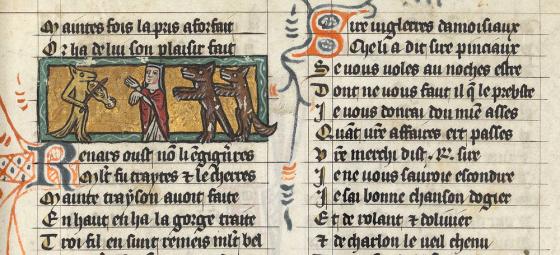 Maintes fois la pris a forfait
Or ha de lui son plaisir fait
Renars oust nō lēgign̄res
Mlt fu traytes & lecherres
Mainte trayson auoit faite
En haut en ha la gorge traite
Troi fil en sunt remeis mlt bel
Sire iuglerres damoisiaux
Cheli a dit sire pinciaux
Se uous uoles au noches estre
Dont ne uous faut il q̄ le prebstre
Je uous donrai dou miē asses
Quāt vr̄e affaires ert passes
Vr̄e merchi dist .R. sire
Je ne uous sauroie escondire
Je sai bonne chanson dogier
Et de rolant & doliuier
& de charlon le ueil chenu